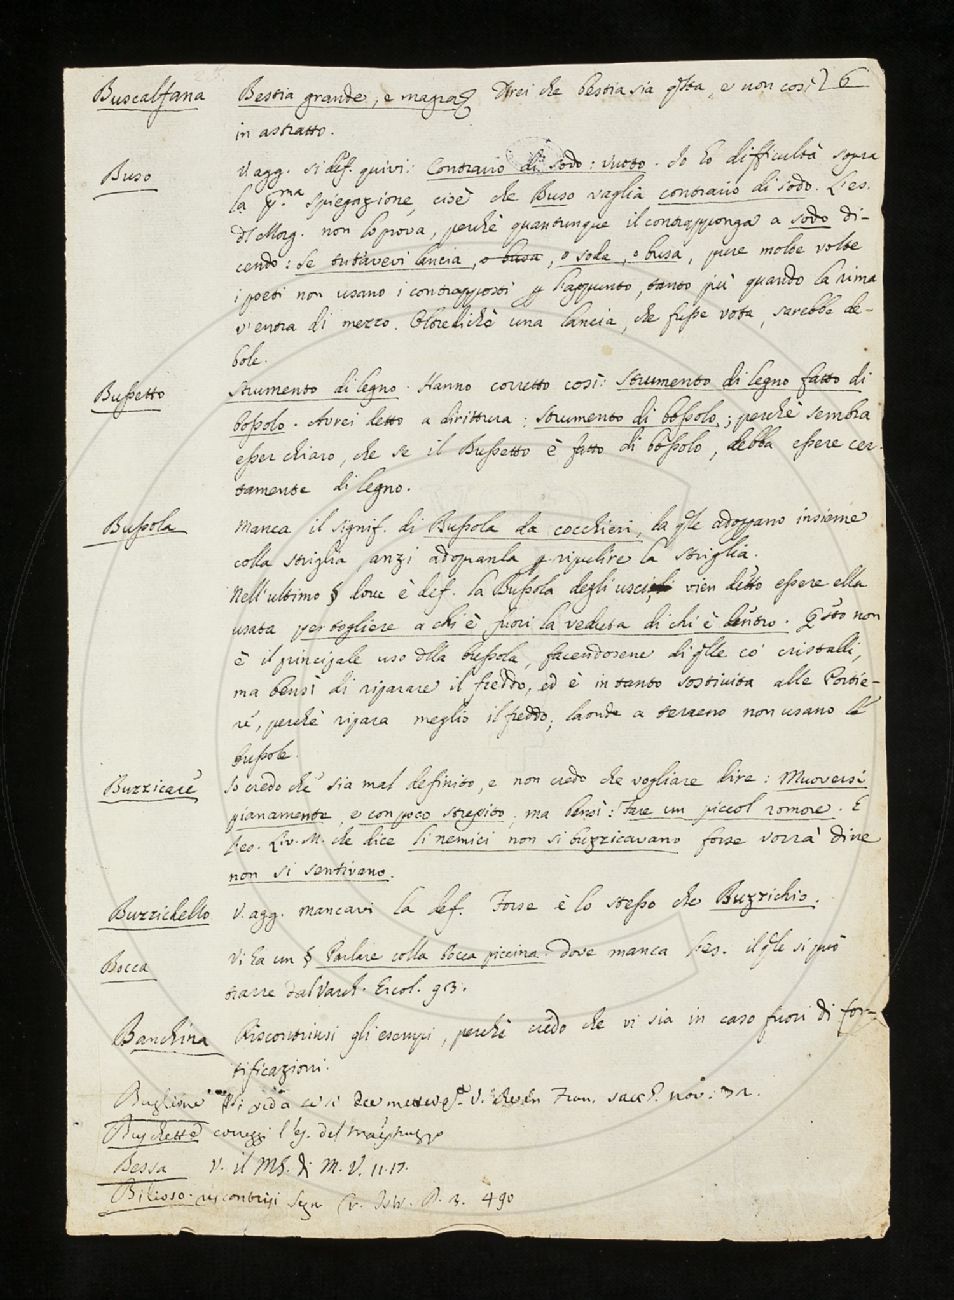 26
Buscalfana Bestia grande, e magra. Direi che bestia sia qsta, e non così
in astratto.
Buso V. agg. si def. quivi: Contrario di sodo: vuoto. Io ho difficultà sopra
la pma spiegazione, cioè che Buso vaglia contrario di sodo. L'es.
del Morg. non lo prova, perchè quantunque il contrapponga a sodo di-
cendo: Se tu t'avevi lancia, o busa, o soda, o busa, pure molte volte
i poeti non usano i contrapposti p l'appunto, tanto più quando la rima
v'entra di mezzo. Oltredichè una lancia, che fusse vota, sarebbe de-
bole.
Bussetto Strumento di legno. Hanno corretto così: Strumento di legno fatto di
bossolo. Avrei detto a dirittura: strumento di bossolo; perchè sembra
esser chiaro, che se il Bussetto è fatto di bossolo, debba essere cer-
tamente di legno.
Bussola Manca il signif. di Bussola da cocchieri, la qle adoprano insieme
colla striglia anzi adopranla p ripulire la striglia.
Nell'ultimo § dove è def. la Bussola degli usci, vien detto essere ella
usata per togliere a chi è fuori la veduta di chi è dentro. Qsto non
è il principale uso dlla bussola, facendosene di qlle co' cristalli,
ma bensì di riparare il freddo, ed è in tanto sostituita alle Portie-
re, perchè ripara meglio il freddo; laonde a terreno non usano le
bussole.
Buzzicare Io credo che sia mal definito, e non credo che vogliare dire: Muoversi
pianamente, e con poco strepito, ma bensì: Fare un piccol romore. E
l'es. Liv. M. che dice li nemici non si buzzicavano forse vorrà dire
non si sentivano.
Buzzichello V. agg. mancavi la def. Forse è lo stesso che Buzzichio.
Bocca Vi ha un § Parlare colla bocca piccina dove manca l'es. il qle si può
trarre dal Varch. Ercol. 93.
Banchina Riscontrinsi gli esempi, perchè credo che vi sia in caso fuori di for-
tificazioni.
Buglione Si vida Fran. Sacch. nov. 32.
Buschette correggi l'es. del
Bessa V. il MS. di M. V. 11. 17.
Bilioso riscontrisi Segn 490